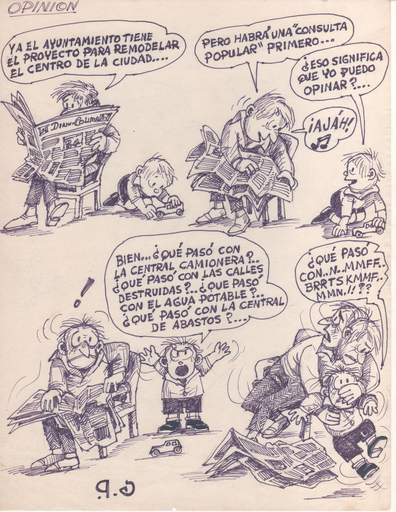 OPINION
YA EL AYUNTAMIENTO TIENE
EL PROYECTO PARA REMODELAR
EL CENTRO DE LA CIUDAD....
PERO HABRÁ UNA "CONSULTA
POPULAR" PRIMERO...
¿ESO SIGNIFICA
QUE YO PUEDO
OPINAR?...
¡AJÁH!
BIEN... ¿QUÉ PASÓ CON
LA CENTRAL CAMIONERA?..
¿QUÉ PASÓ CON LAS CALLES
DESTRUIDAS?..¿QUE PASÓ
CON EL AGUA POTABLE?..
¿QUE PASÓ CON LA CENTRAL
DE ABASTOS?...
!
¿QUE PASÓ
CON..N..MMFF..
BRRTS KMMF..
MMN.!!??